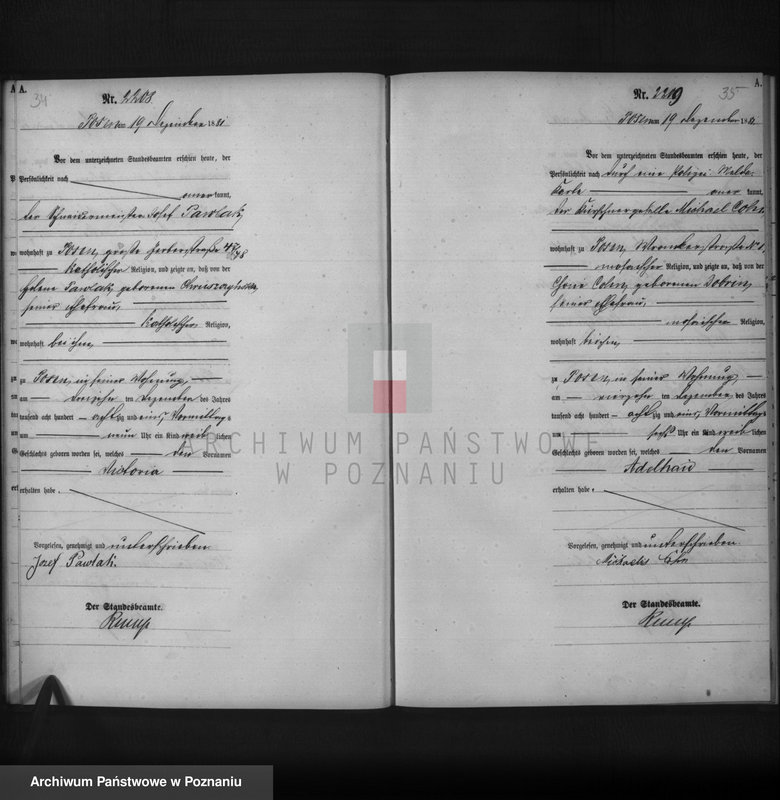 A. 34
Nr. 2208
Posen am 19 Dezember 1881
Vor dem unterzeichneten Standesbeamten erschien heute, der
Persönlichkeit nach
kannt,
der Schneidermeister Josef Pawlak,
wohnhaft zu Posen, große Gerberstraße 47/48
katholischer Religion, und zeigte an, daß von der
Helene Pawlak, geborenen
seiner Ehefrau,
katholischer Religion,
wohnhaft bei ihm,
zu Posen, in seiner Wohnung,
am ten Dezember des Jahres
tausend acht hundert achtzig und eins, Vormittags
um neun Uhr ein Kind weiblichen
Geschlechts geboren worden sei, welches den Vornamen
Victoria
erhalten habe.
Vorgelesen, genehmigt und unterschrieben
Jozef Pawlak
Der Standesbeamte.
A. 35
Nr. 2219
Posen am 19 Dezember 1881
Vor dem unterzeichneten Standesbeamten erschien heute, der
Persönlichkeit nach durch eine Polizei Melde
karte kannt,
der Kürschnergeselle Michael Cohn,
wohnhaft zu Posen, Wronkerstraße No
mosaischer Religion, und zeigte an, daß von der
Cohn, geborenen Dobrin,
seiner Ehefrau,
mosaischer Religion,
wohnhaft
zu Posen, in seiner Wohnung,
am vierzehn ten Dezember des Jahres
tausend acht hundert achtzig und eins, Vormittags
um sechs Uhr ein Kind weiblichen
Geschlechts geboren worden sei, welches den Vornamen
Adelhaid
erhalten habe.
Vorgelesen, genehmigt und unterschrieben
Michaelis Cohn
Der Standesbeamte.
ARCHIWUM PAŃSTWOWE
W POZNANIU
Archiwum Państwowe w Poznaniu